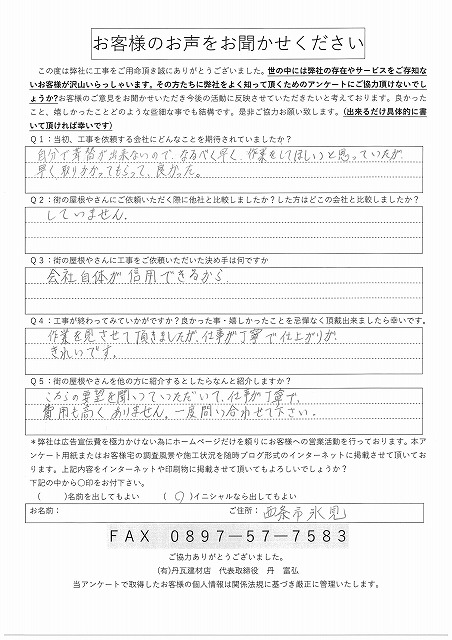 お客様のお声をお聞かせください
この度は弊社に工事をご用命頂き誠にありがとうございました。世の中には弊社の存在やサービスをご存知な
いお客様が沢山いらっしゃいます。その方たちに弊社をよく知って頂くためのアンケートにご協力頂けないでし
ょうか?お客様のご意見をお聞かせいただき今後の活動に反映させていただきたいと考えております。良かった
こと、嬉しかったことどのような些細な事でも結構です。是非ご協力お願い致します。(出来るだけ具体的に書
いて頂ければ幸いです)
Q1:当初、工事を依頼する会社にどんなことを期待されていましたか?
自分で葺替が出来ないので、なるべく早く、作業をしてほしいと思っていたが、
早く取りかかってもらって、良かった。
Q2:街の屋根やさんにご依頼いただく際に他社と比較しましたか?した方はどこの会社と比較しましたか?
していません.
Q3:街の屋根やさんに工事をご依頼いただいた決め手は何ですか
会社自体が信用できるから.
Q4:工事が終わってみていかがですか?良かった事・嬉しかったことを忌憚なく頂戴出来ましたら幸いです。
作業を見させて頂きましたが、仕事が丁寧で仕上がりが
きれいです。
Q5:街の屋根やさんを他の方に紹介するとしたらなんと紹介しますか?
こちらの要望を聞いていただいて、仕事が丁寧で、
費用も高くありません。一度問い合わせて下さい.
*弊社は広告宣伝費を極力かけない為にホームページだけを頼りにお客様への営業活動を行っております。本ア
ンケート用紙またはお客様宅の調査風景や施工状況を随時ブログ形式のインターネットに掲載させて頂いてお
ります。上記内容をインターネットや印刷物に掲載させて頂いてもよろしいでしょうか?
下記の中から〇印をお付下さい。
( )名前を出してもよい (○)イニシャルなら出してもよい
お名前: ご住所: 西条市氷見
FAX 0897-57-7583
ご協力ありがとうございました。
(有)丹瓦建材店 代表取締役 丹 富弘
当アンケートで取得したお客様の個人情報は関係法規に基づき厳正に管理いたします。